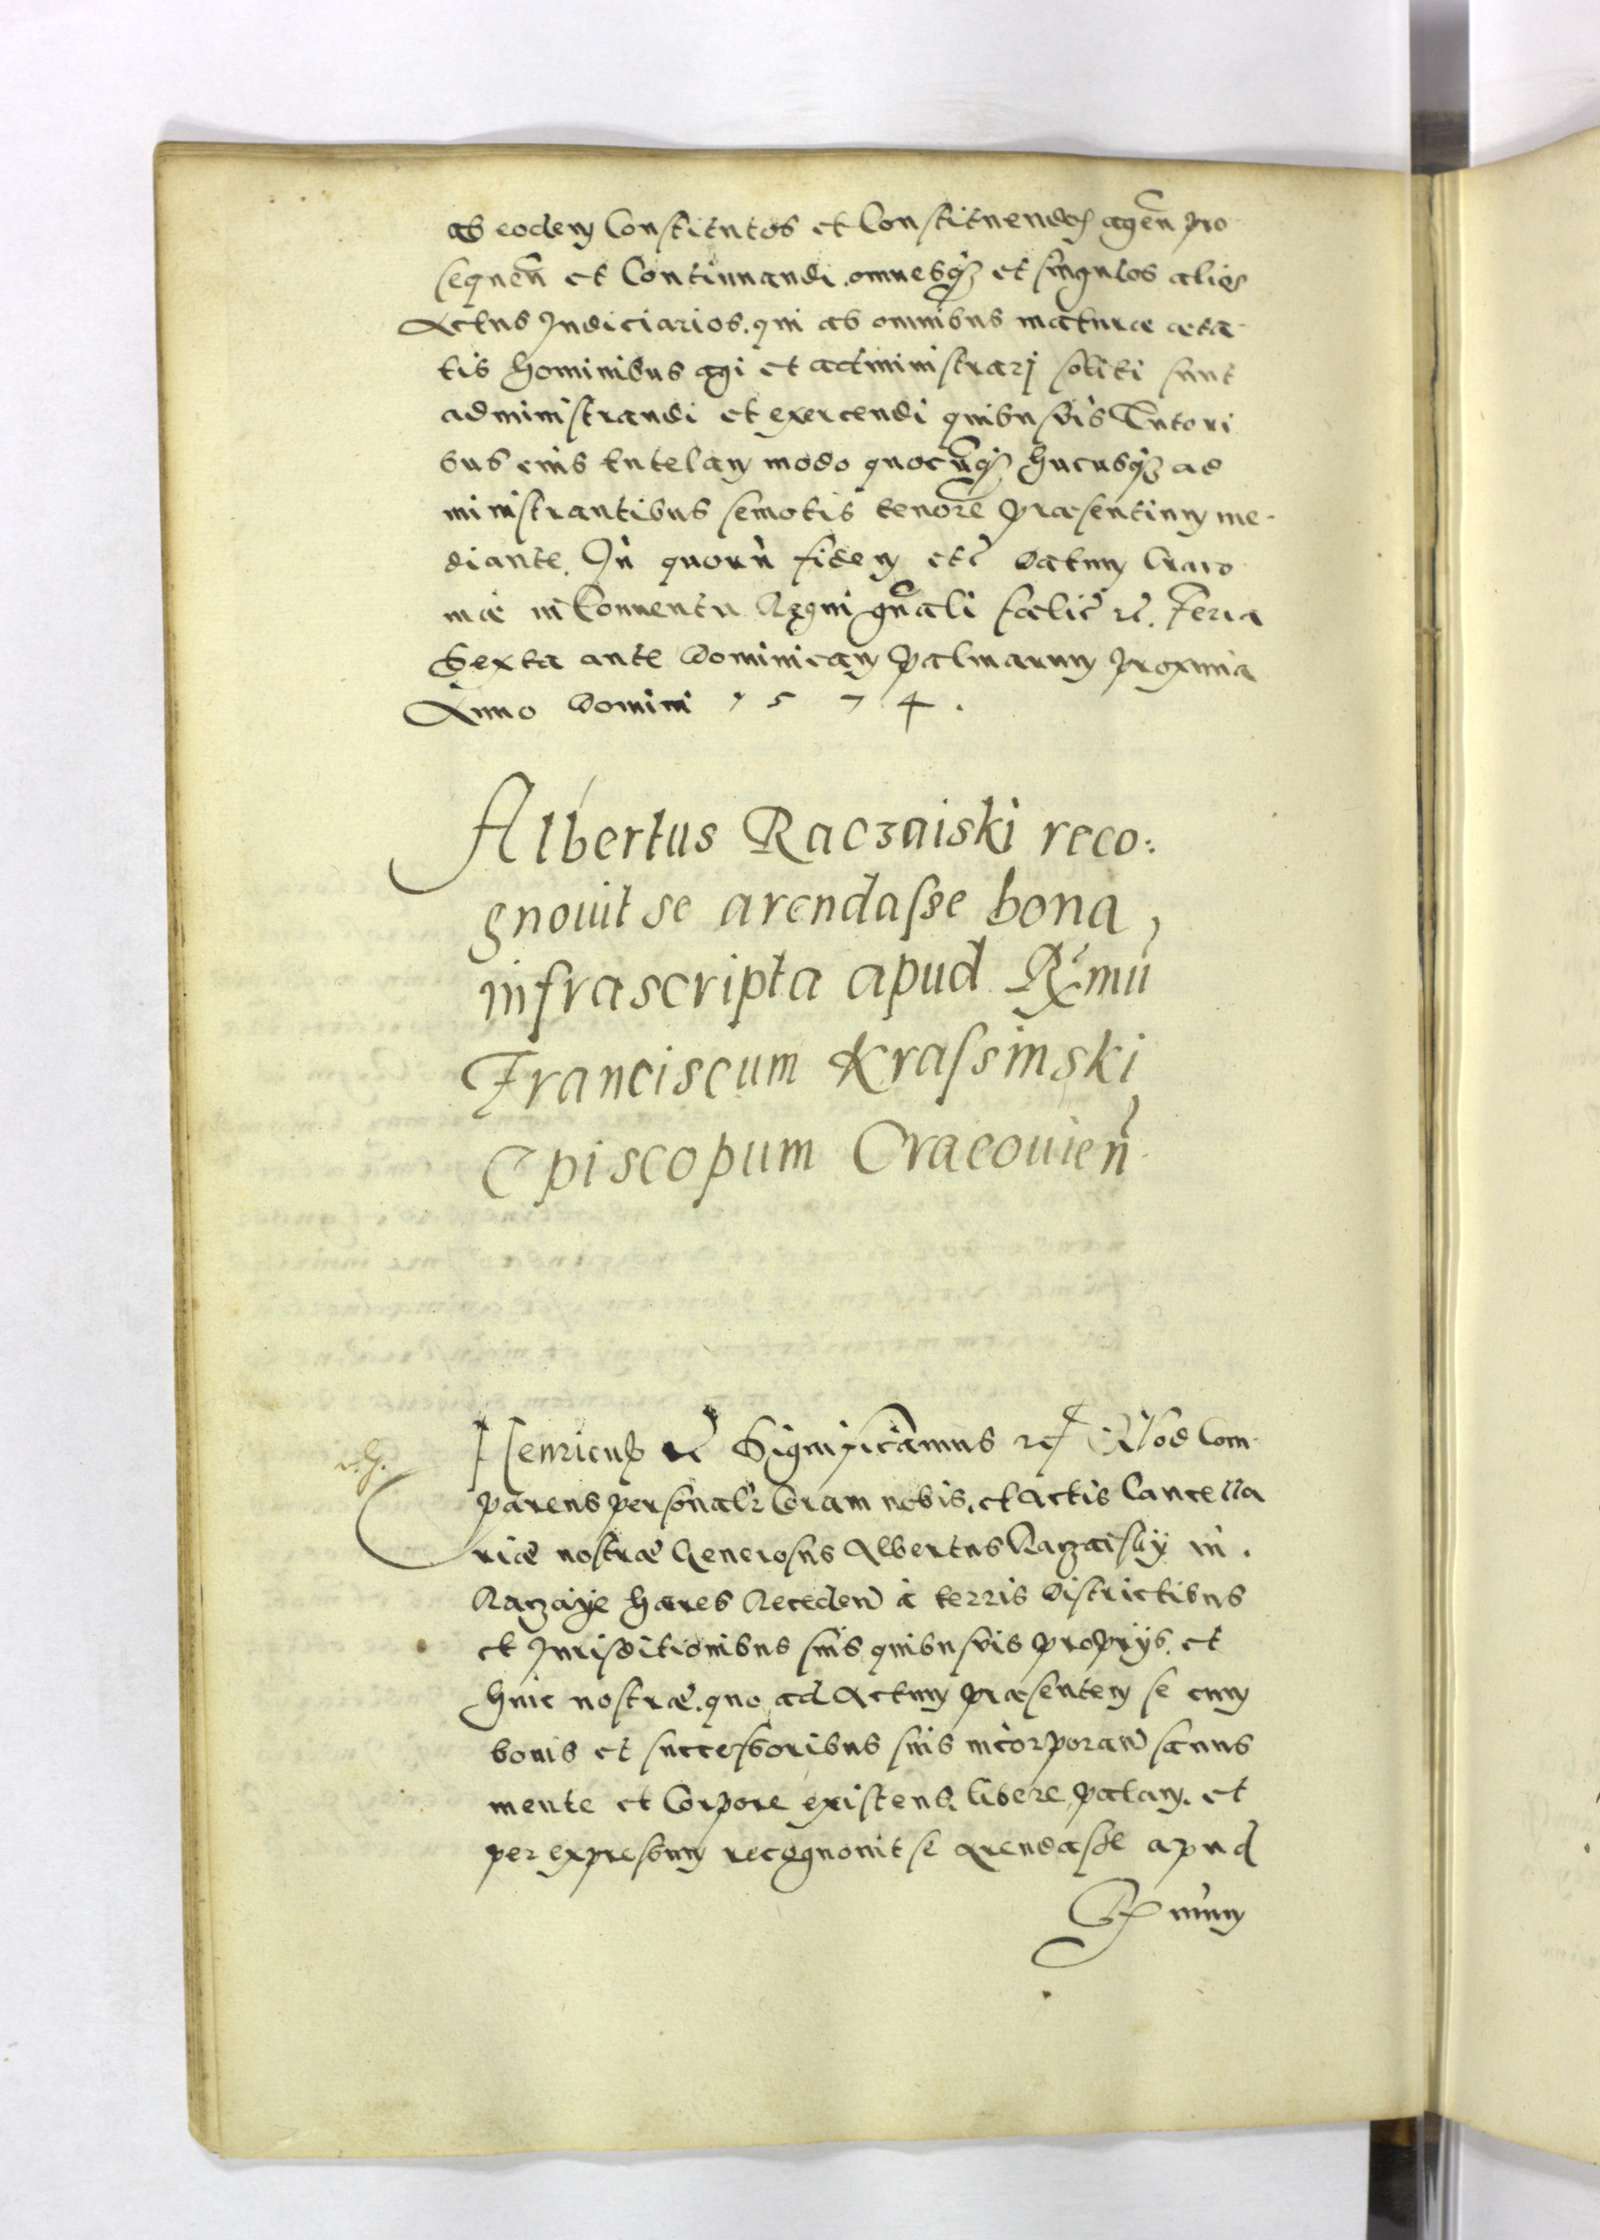 ab eodem Constitutos et Constituendos agen̄ pro
sequen̄ et Continuandi omnesq3 et singulos alios
Actus Judiciarios qui ab omnibus maturæ æta
tis hominibus agi et administrarj soliti sunt
administrandi et exercendi quibusvis Tutori
bus eius tutelam modo quocūq3 hucusq3 ad
ministrantibus semotis tenore præsentium me-
diante. In quorū fidem etc̄ Datum Craco
uiæ in Conuentu Regni gn̄ali fœlic̄ etc̄. Feria
Sexta ante Dominicam Palmarum proxima
Anno Domini 1574.
Albertus Raczaiski reco:
gnouit se arendasse bona
infrascripta apud R̄mū
Franciscum Krassinski
Episcopum Cracouien̄
Henricus etc̄ Significamus etc̄ Quod Com
parens personalr̄ Coram nobis, et Actis Cancella
riæ nostræ Generosus Albertus Raczaisky in
Raczaye hæres Receden̄ à terris Districtibus
et Jurisditionibus suis quibusvis proprijs, et
huic nostræ, quo ad Actum præsentem se cum
bonis et successoribus suis incorporan̄ sanus
mente et Corpore existens, libere palam, et
per expressum recognouit se Arendasse apud
R̄mum